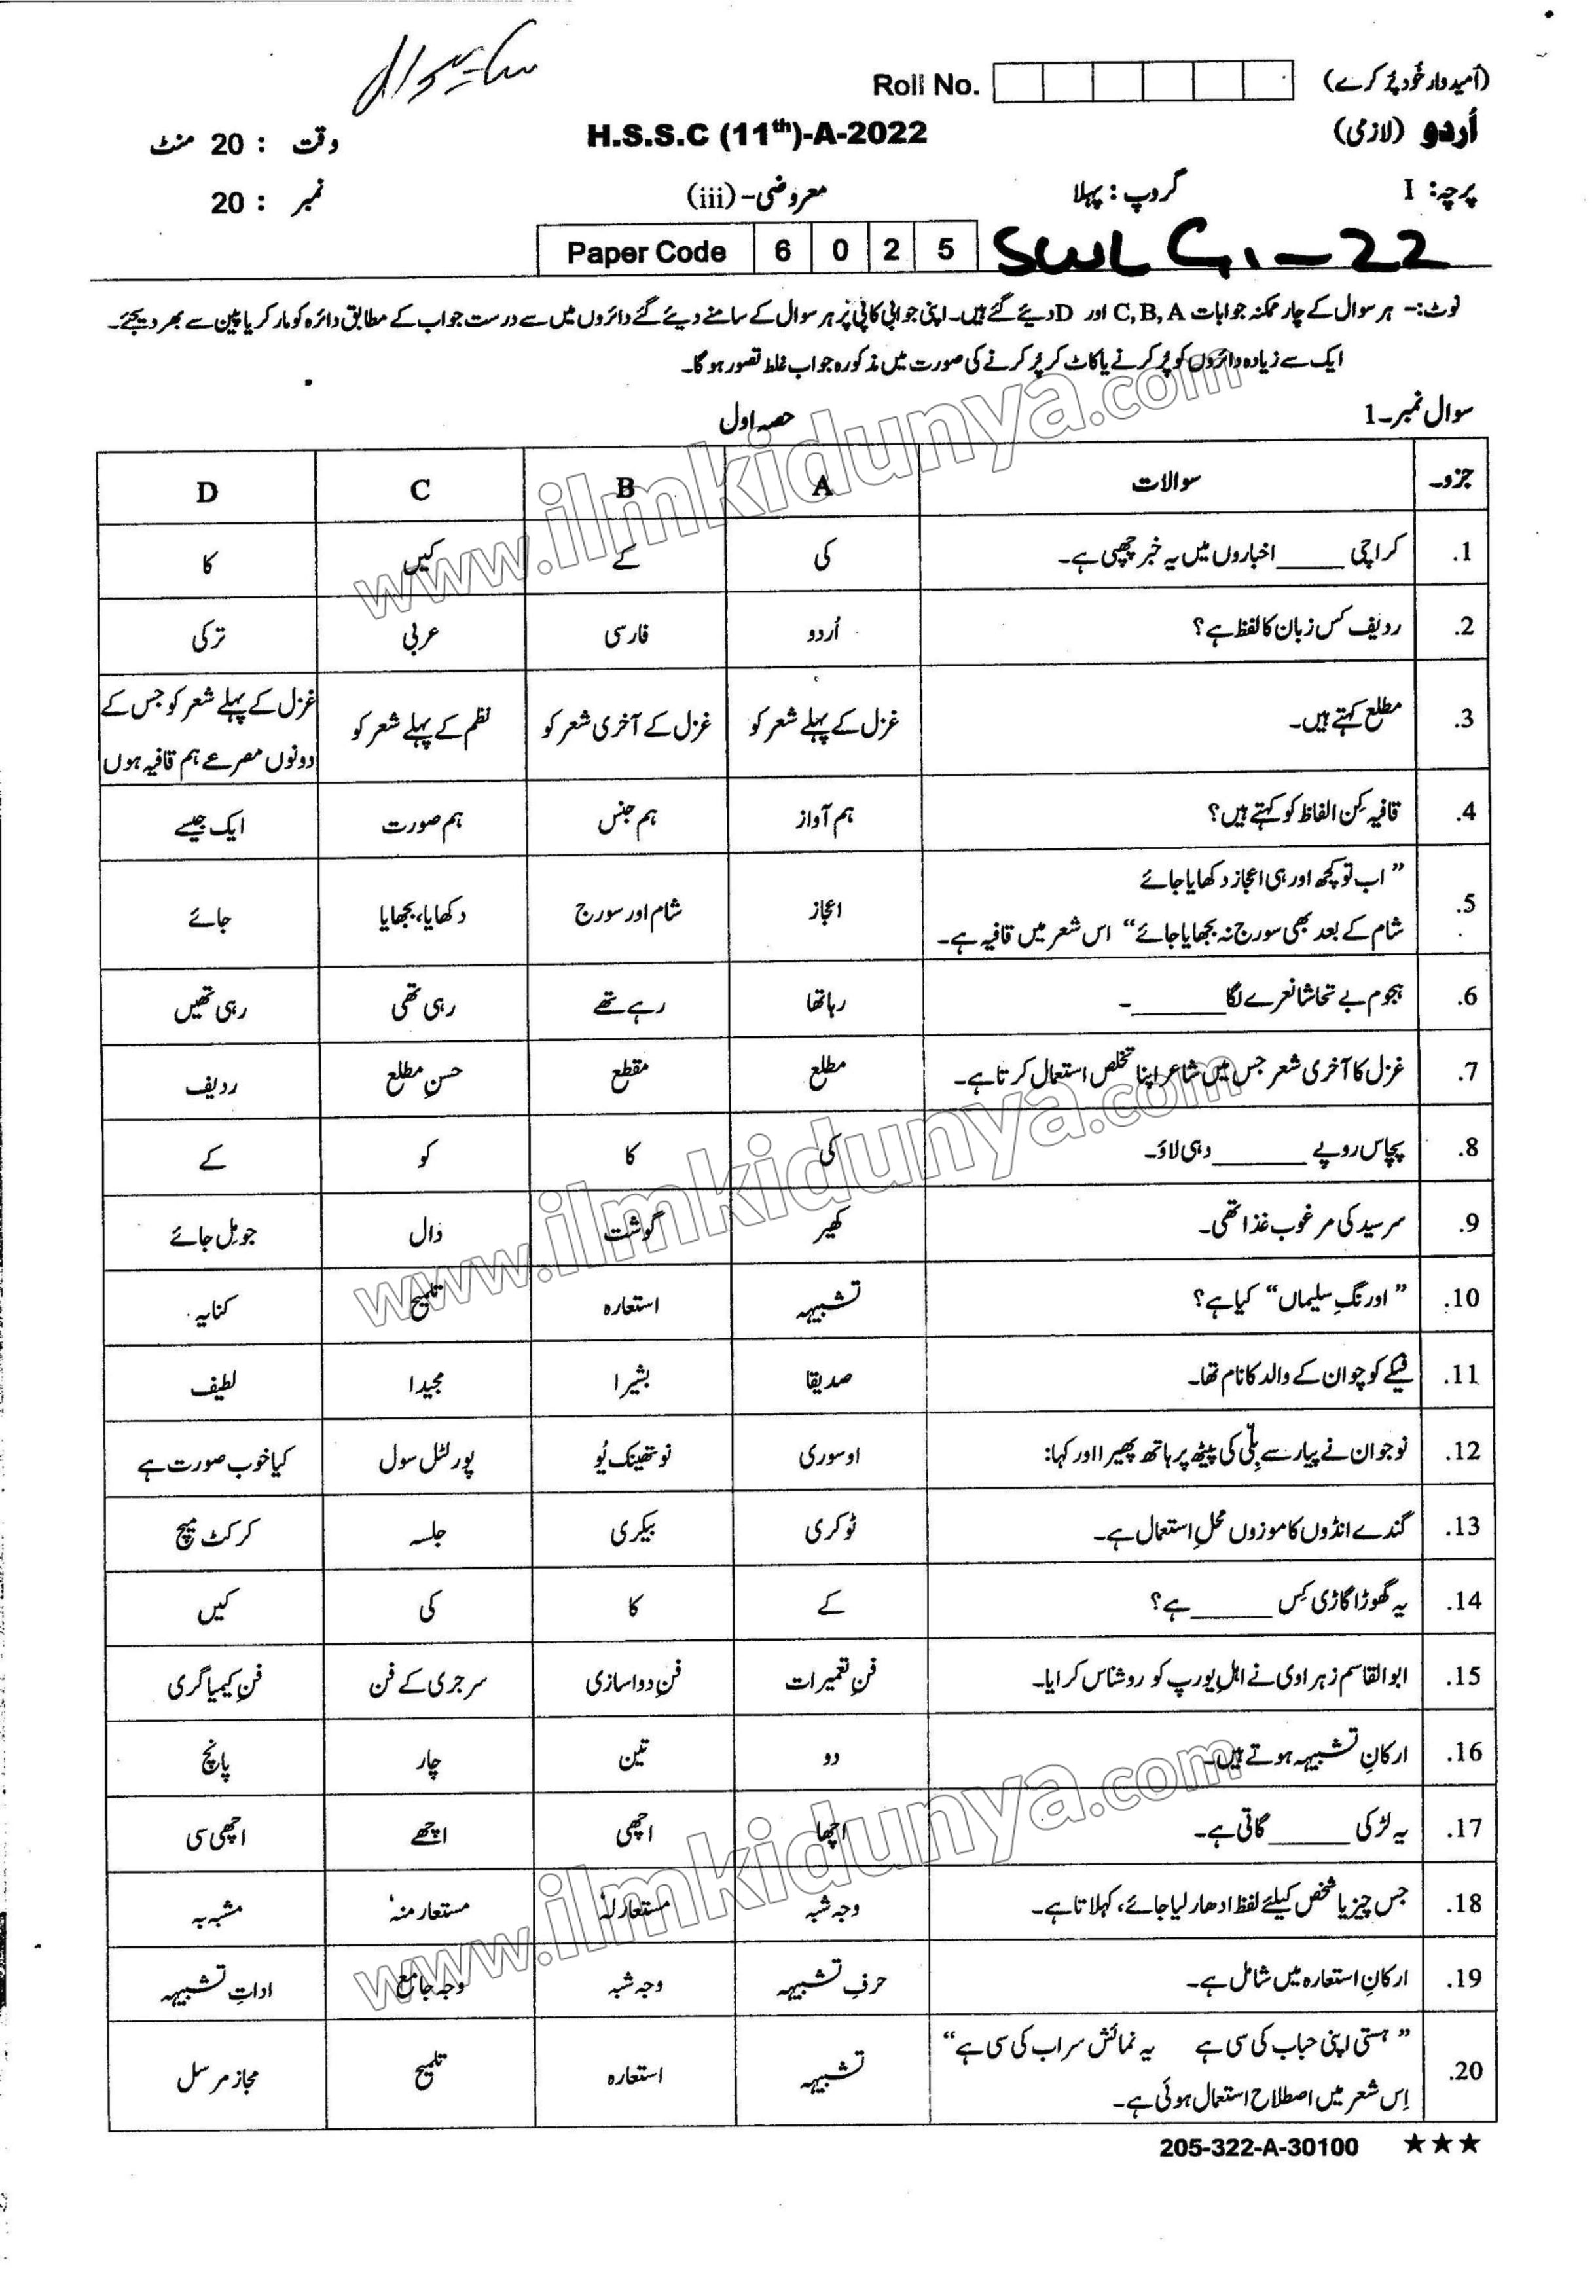 ساہیوال
Roll No. (اُمیدوار خُود پُر کرے)
اُردو (لازمی) H.S.S.C (11th)-A-2022 وقت : 20 منٹ
پرچہ: I گروپ: پہلا معروضی-(iii) نمبر : 20
Paper Code 6 0 2 5 SWL G1-22
نوٹ:- ہر سوال کے چار ممکنہ جوابات C, B, A اور D دیے گئے ہیں۔ اپنی جوابی کاپی پر ہر سوال کے سامنے دیے گئے دائروں میں سے درست جواب کے مطابق دائرہ کو مارکر یا پین سے بھر دیجئے۔
ایک سے زیادہ دائروں کو پُر کرنے یا کاٹ کر پُر کرنے کی صورت میں مذکورہ جواب غلط تصور ہو گا۔
سوال نمبر-1 حصہ اول
جزو۔ سوالات A B C D
1. کراچی _____ اخباروں میں یہ خبر چھپی ہے۔ کی کے کیں کا
2. ردیف کس زبان کا لفظ ہے؟ اُردو فارسی عربی ترکی
3. مطلع کہتے ہیں۔ غزل کے پہلے شعر کو غزل کے آخری شعر کو نظم کے پہلے شعر کو غزل کے پہلے شعر کو جس کے
دونوں مصرعے ہم قافیہ ہوں
4. قافیہ کِن الفاظ کو کہتے ہیں؟ ہم آواز ہم جنس ہم صورت ایک جیسے
5. ”اب تو کچھ اور ہی اعجاز دکھایا جائے
شام کے بعد بھی سورج نہ بجھایا جائے“ اس شعر میں قافیہ ہے۔ اعجاز شام اور سورج دکھایا، بجھایا جائے
6. ہجوم بے تحاشا نعرے لگا _______۔ رہا تھا رہے تھے رہی تھی رہی تھیں
7. غزل کا آخری شعر جس میں شاعر اپنا تخلص استعمال کرتا ہے۔ مطلع مقطع حسنِ مطلع ردیف
8. پچاس روپے _______ دہی لاؤ۔ کی کا کو کے
9. سرسید کی مرغوب غذا تھی۔ کھیر گوشت دال جو مِل جائے
10. ”اورنگِ سلیماں“ کیا ہے؟ تشبیہہ استعارہ تلمیح کنایہ
11. فیکے کوچوان کے والد کا نام تھا۔ صدیقا بشیرا مجیدا لطیف
12. نوجوان نے پیار سے بِلّی کی پیٹھ پر ہاتھ پھیرا اور کہا: او سوری نو تھینک یُو پور لٹل سول کیا خوب صورت ہے
13. گندے انڈوں کا موزوں محلِ استعمال ہے۔ ٹوکری بیکری جلسہ کرکٹ میچ
14. یہ گھوڑا گاڑی کِس ______ ہے؟ کے کا کی کیں
15. ابوالقاسم زہراوی نے اہلِ یورپ کو روشناس کرایا۔ فنِ تعمیرات فنِ دواسازی سرجری کے فن فنِ کیمیا گری
16. ارکانِ تشبیہہ ہوتے ہیں۔ دو تین چار پانچ
17. یہ لڑکی ______ گاتی ہے۔ اچھا اچھی اچھے اچھی سی
18. جس چیز یا شخص کیلئے لفظ ادھار لیا جائے، کہلاتا ہے۔ وجہ شبہ مستعار لہٗ مستعار منہٗ مشبہ بہ
19. ارکانِ استعارہ میں شامل ہے۔ حرفِ تشبیہہ وجہ شبہ وجہ جامع اداتِ تشبیہہ
20. ”ہستی اپنی حباب کی سی ہے یہ نمائش سراب کی سی ہے“
اِس شعر میں اصطلاح استعمال ہوئی ہے۔ تشبیہہ استعارہ تلمیح مجاز مرسل
205-322-A-30100 ★★★
www.ilmkidunya.com
www.ilmkidunya.com
www.ilmkidunya.com